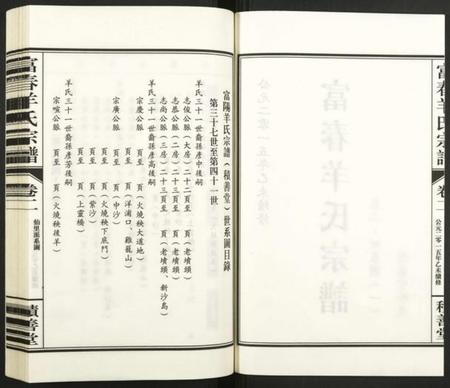 富陽羊氏宗譜(積善堂)世系圖目錄
第三十七世至第四十一世
羊氏三十一世裔孫彥中後嗣
宗俊公脈(大房)二十二頁至 頁(老墳頭)
志恭公脈(二房)二十三頁至 頁(老墳頭)
志尚公脈(三房)二十三頁至 頁(老墳頭、新沙島)
羊氏三十一世裔孫彥高後嗣
宗慶公脈 頁至 頁(火燒秧大道地)
頁至 頁(洋浦口、雞籠山)
宗廣公脈 頁至 頁(中沙)
頁至 頁(火燒秧下底門)
羊氏三十一世裔孫彥芳後嗣
頁至 頁(紫沙)
頁至 頁(上靈橋)
宗喧公脈 頁至 頁(火燒秧後羊)
富春羊氏宗譜
卷二
仙里派系圖
積善堂
富春羊氏宗譜
卷二
公元二零一五年乙未續修
積善堂
公元二零一五年乙未續修
富春羊氏宗譜